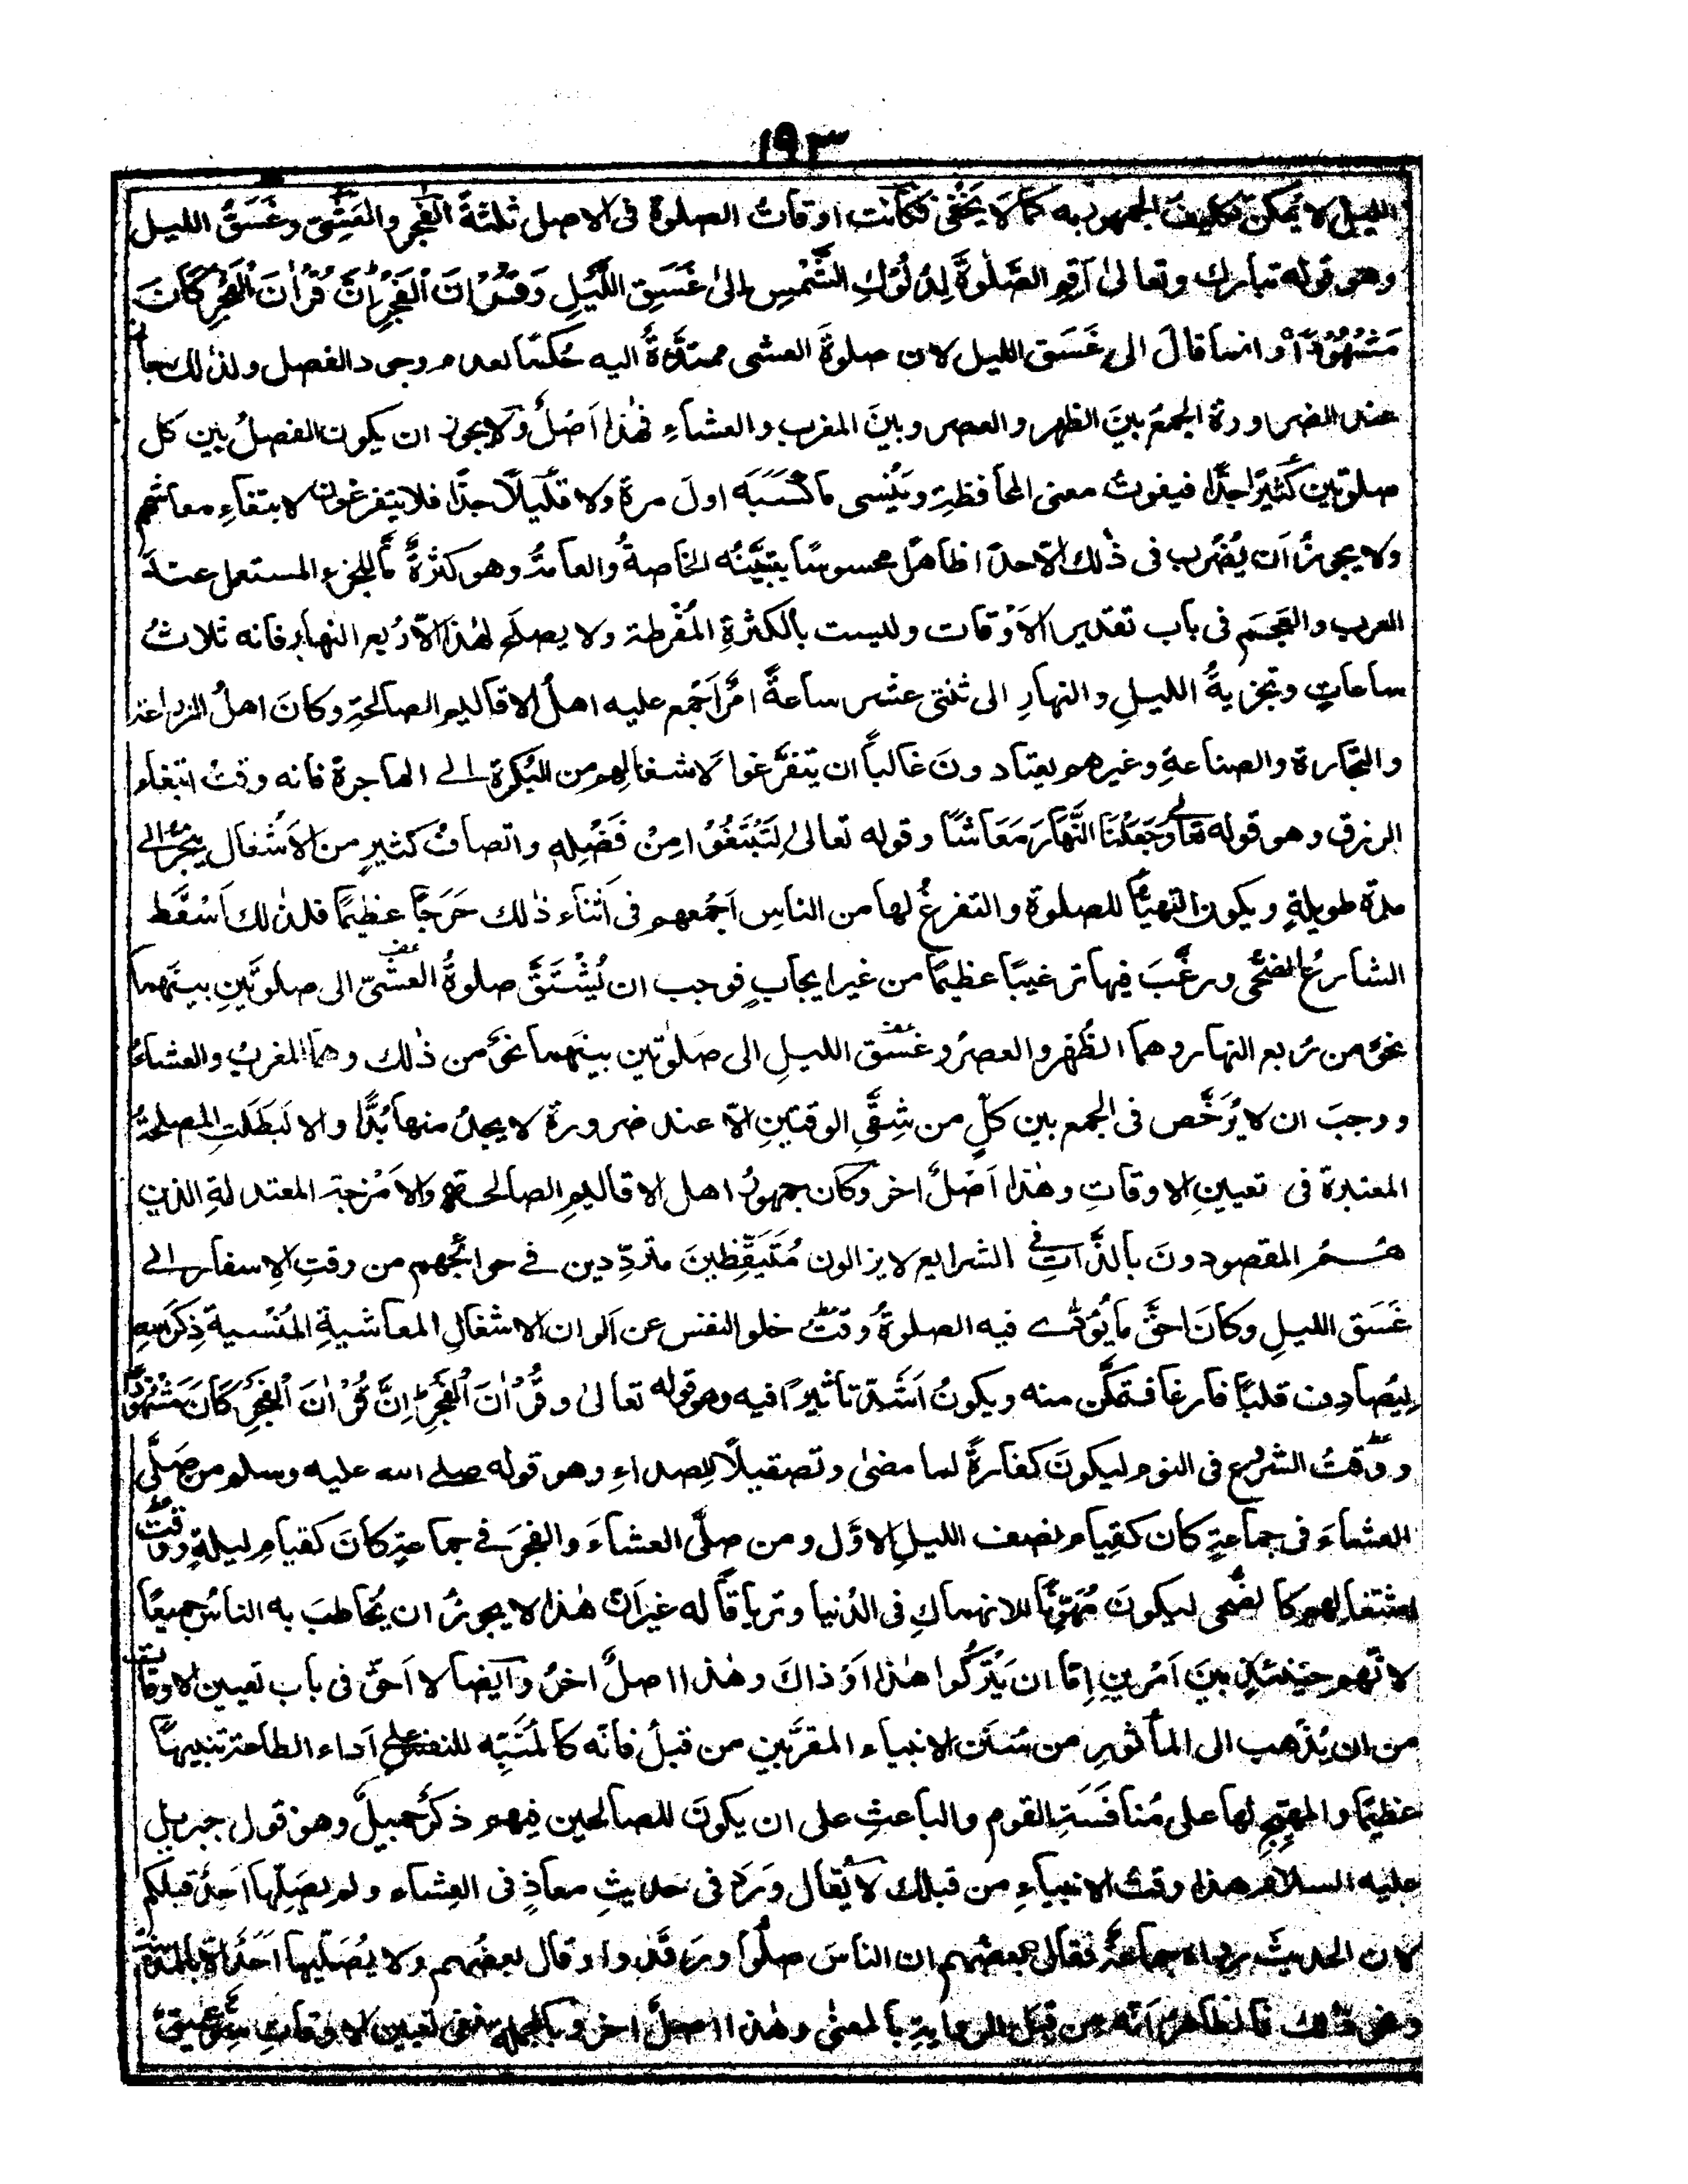 ١٩٣
الليل لا يُمكن تكليفُ الجمهور به كما لا يَخْفى فكانت اوقاتُ الصلوة فى الاصل ثلثةً الفجر والعَشِىّ وغَسَقُ الليل
وهو قوله تبارك وتعالىٰ اَقِمِ الصَّلٰوةَ لِدُلُوْكِ الشَّمْسِ اِلىٰ غَسَقِ اللَّيْلِ وَقُرْاٰنَ الْفَجْرِ اِنَّ قُرْاٰنَ الْفَجْرِ كَانَ
مَشْهُوْدًا وانما قالَ الى غَسَق الليل لان صلوةَ العشى ممتدّةٌ اليه حُكمًا لعدم وجود الفصل ولذٰلك جاز
عند الضرورة الجمعُ بينَ الظهر والعصر وبينَ المغرب والعشاءِ فهٰذا اَصْلٌ ولا يجوز ان يكون الفصلُ بين كل
صلوتين كثيرًا جدًّا فيفوتُ معنى المحافظةِ ويُنْسى ما كسَبَه اولَ مرة ولا قليلاً جدًّا فلا يتفرغون لابتغاءِ معاشهم
ولا يجوزُ اَن يُضْرب فى ذٰلك الاّ حدًا ظاهرًا محسوسًا يتبيَّنُه الخاصةُ والعامةُ وهو كثرةٌ مّا للجزء المستعمل عند
العرب والعَجَم فى باب تقدير الاَوْقات وليست بالكثرةِ المُفْرطة ولا يصلح لهٰذا الاّ رُبع النهار فانه ثلاثُ
ساعاتٍ وتجزيةُ الليل والنهارِ الى ثنتى عشر ساعةً امرٌ اَجْمع عليه اهلُ الاقاليم الصالحةِ وكانَ اهلُ الزراعة
والتجارة والصناعةِ وغيرهم يعتادونَ غالباً ان يتفرّغوا لاشغالهم من البُكرة الى الهاجرة فانه وقتُ ابتغاء
الرزق وهو قوله تعالى وَجَعَلْنَا النَّهَارَ مَعَاشًا وقوله تعالىٰ لِتَبْتَغُوْا مِنْ فَضْلِهٖ وايضاً كثير من الاَشْغال ينجرّ الى
مدة طويلةٍ ويكون التهيّأُ للصلوة والتفرغُ لها من الناس اَجْمعهم فى اَثناء ذٰلك حَرَجًا عظيمًا فلذٰلك اَسْقَط
الشارعُ الضحٰى ورغَّبَ فيها ترغيبًا عظيمًا من غير ايجابٍ فوجب ان تُشْتَقَّ صلوةُ العشىّ الى صلوتَينِ بينَهما
نحوٌ من رُبع النهار وهما الظُهر والعصرُ وغسق الليلِ الى صَلوٰتين بينَهما نحوٌ من ذٰلك وهما المغربُ والعشاءُ
ووجبَ ان لا يُرخَّص فى الجمع بين كلٍ من شِقَّىِ الوقتينِ الاّ عند ضرورة لا يجدُ منها بُدًّا والا لبَطَلتِ المصلحةُ
المعتبرة فى تعيينِ الاوقاتِ وهٰذا اَصْلٌ اخر وكان جمهورُ اهل الاقاليمِ الصالحةِ والاَمْزجةِ المعتدلةِ الذين
هُم المقصودونَ بالذَّاتِ فى الشرايع لا يزالون مُتَيَقِّظينَ متردّدين فى حوائجهم من وقتِ الاِسفار الى
غَسَق الليل وكانَ احقَّ ما يُؤدّى فيه الصلوةُ وقتُ خلو النفس عن اَلوان الاشغالِ المعاشيةِ المُنْسيةِ ذِكرَ الله
لِيُصادِف قلبًا فارغًا فتمكَّن منه ويكونُ اَشدّ تاثيرًا فيه وهو قوله تعالىٰ وقُرْاٰنَ الْفَجْرِ اِنَّ قُرْاٰنَ الْفَجْرِ كَانَ مَشْهُوْدًا
ووقتُ الشروع فى النوم ليكونَ كفارةً لما مضىٰ وتصقيلاً للصداءِ وهو قوله صلى الله عليه وسلم من صَلَّى
العشاءَ فى جماعةٍ كان كقيام نصف الليلِ الاوّل ومن صلَّى العشاءَ والفجرَ فى جماعةٍ كانَ كقيامِ ليلةٍ ووقتُ
اشتغالهم كالضُحى ليكونَ مُهَوِّنًا للانهماكِ فى الدُنيا وترياقًا له غير اَنّ هٰذا لا يجوزُ ان يُخاطبَ به الناسُ جميعًا
لانّهم حينئذٍ بينَ اَمْرينِ اِمّا ان يَتْركُوا هٰذا اَوْ ذاكَ وهٰذا اصلٌ اخرُ وآيضا لا اَحقّ فى باب تعيين الاوقات
من ان يُذْهب الى المأثورِ من سُنَنِ الانبياء المقرّبين من قبلُ فانّه كالمُنَبِّه للنفس على اَداء الطاعة تنبيهًا
عظيمًا والمهيّجِ لها على مُنافَسَةِ القوم والباعثِ على ان يكونَ للصالحين فيهم ذكرٌ جميلٌ وهو قول جبريل
عليه السلام هذا وقتُ الانبياءِ من قبلك لا يُقال وَرَدَ فى حديثِ معاذٍ فى العِشاء ولم يصَلِّها احدٌ قبلكم
لان الحديثَ رواه جماعةٌ فقال بعضهم ان الناسَ صلَّوا ورَقَدوا وقال بعضُهم ولا يُصَلّيها احدٌ الاّ بالمدينةِ
ونحو ذٰلك فالظاهرُ اَنّه من قِبَل الروايةِ بالمعنٰى وهٰذا اصلٌ اخر وبالجملةِ ففى تعيين الاوقاتِ سِرٌّ عميقٌ